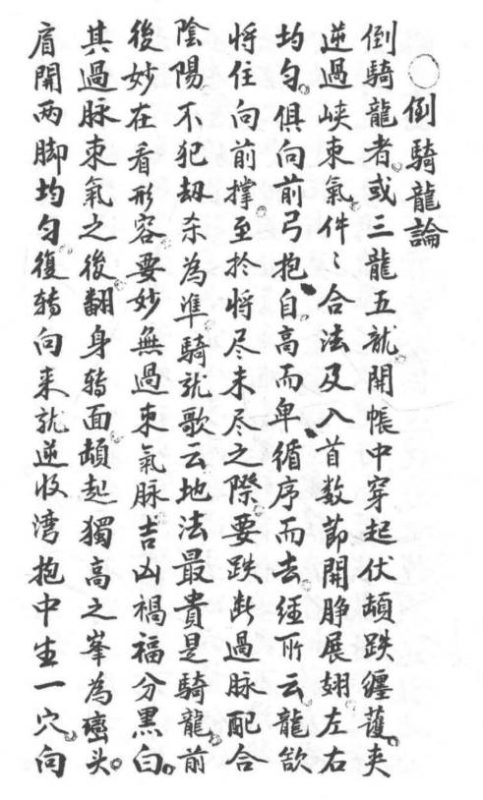 ○倒騎龍論
倒騎龍者。或三龍五龙開帳中穿起伏頓跌纏護。夾
逆過峡束氣。件〻合法及入首数節開睁展翅左右
均匀。俱向前弓抱。自高而卑。循序而去。経所云龍欲
将住向前撑。至於将尽未尽之際。要跌断過脉配合
陰陽不犯刼杀為準。騎龙歌云地法最貴是騎龍。前
後妙在看形容。要妙無過束氣脉吉凶禍福分黑白。
其過脉束氣之後。翻身转面。頓起獨高之峯為巒头。
肩開两脚均匀。復转向来龙逆收湾抱中生一穴。向